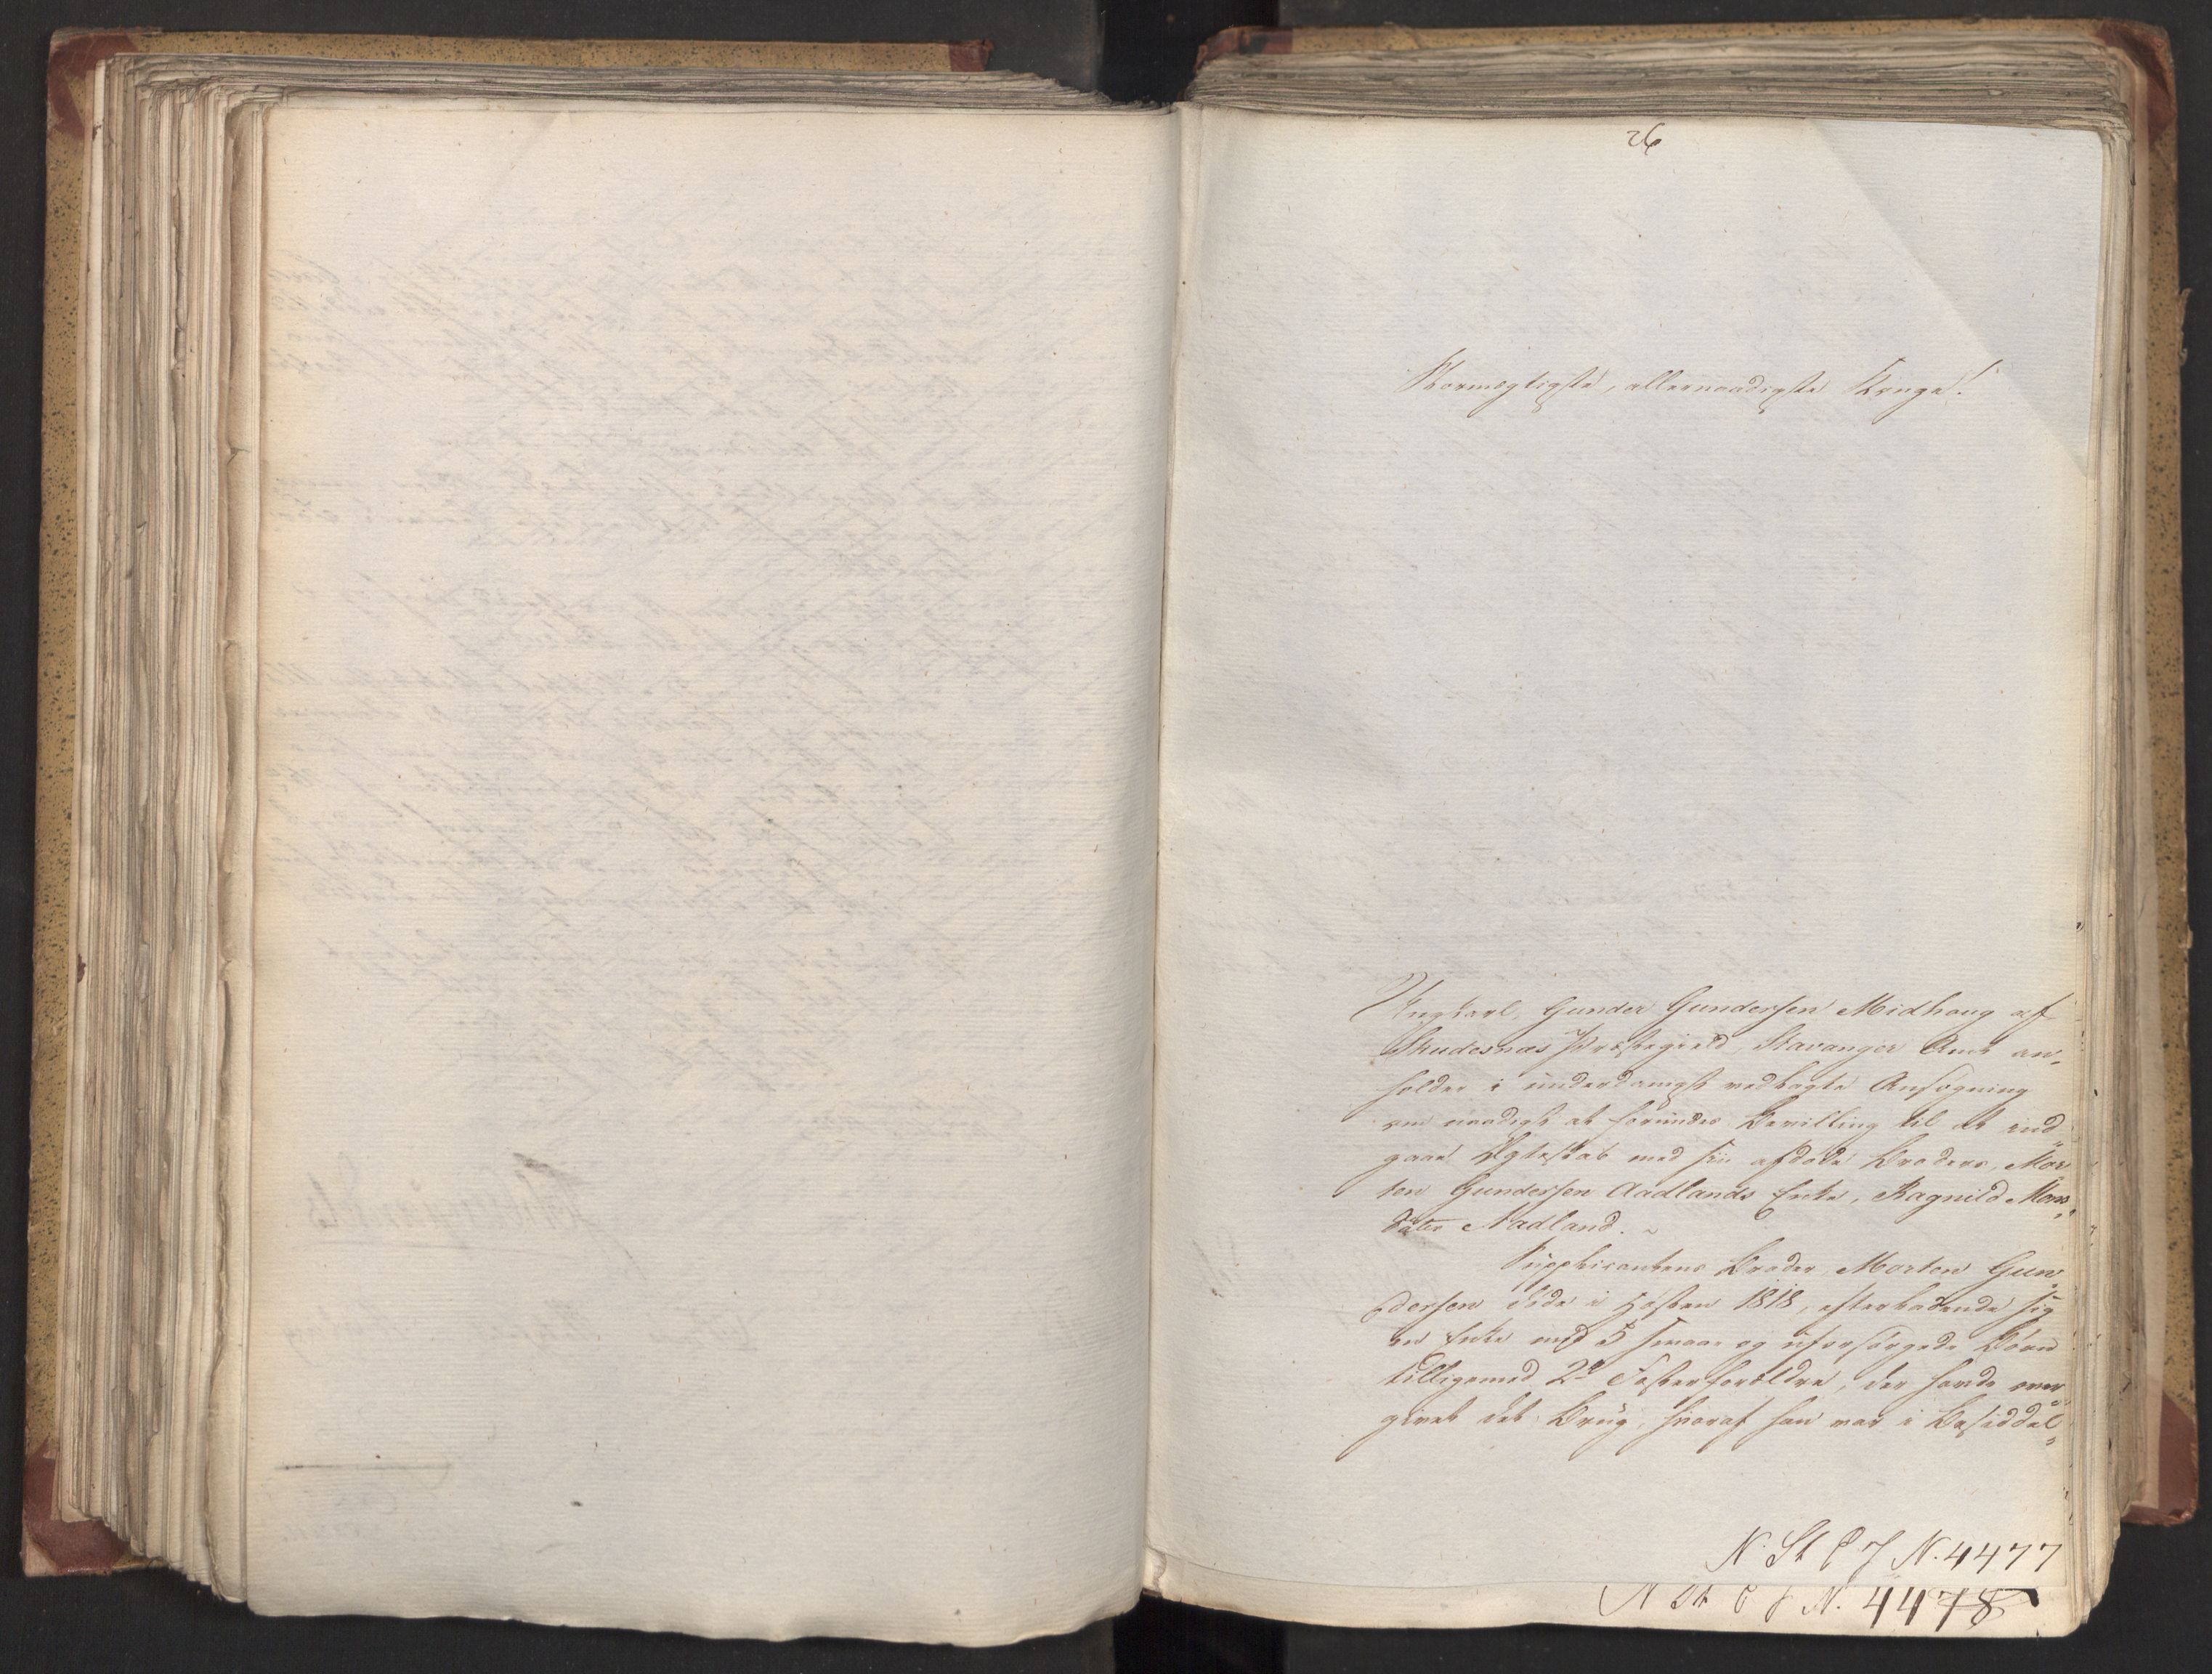 26
Stormægtigste, allernaadigste Konge!
Ungkarl, Gunder Gundersen Midhaug af
Skudesnæs Præstegield, Stavanger Amt an„
holder i underdanigst vedlagte Ansøgning
om naadigst at forundes Bevilling til at ind„
gaae Ægteskab med sin afdøde Broders, Mor„
ten Gundersen Aadlands Enke, Ragnild Mons„
datter Aadland.
Supplicantens Broder, Morten Gun„
dersen døde i Høsten 1818, efterladende sig
en Enke med 5 smaae og uforsørgede Børn
tilligemed 2de Fosterforældre, der havde over„
givet det Brug, hvoraf han var i Besiddel„
N. St C J N. 4477
N St C J N. 4478